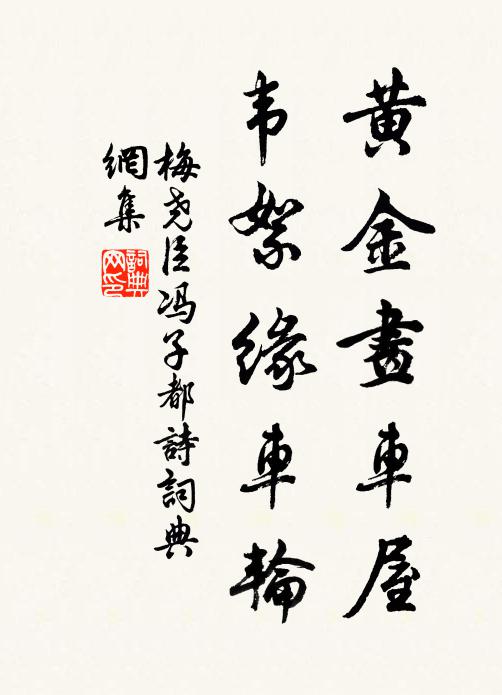 黄金畫車屋
韦絮緣車輪
梅尧臣冯子都詩詞典
網集
詞典网印